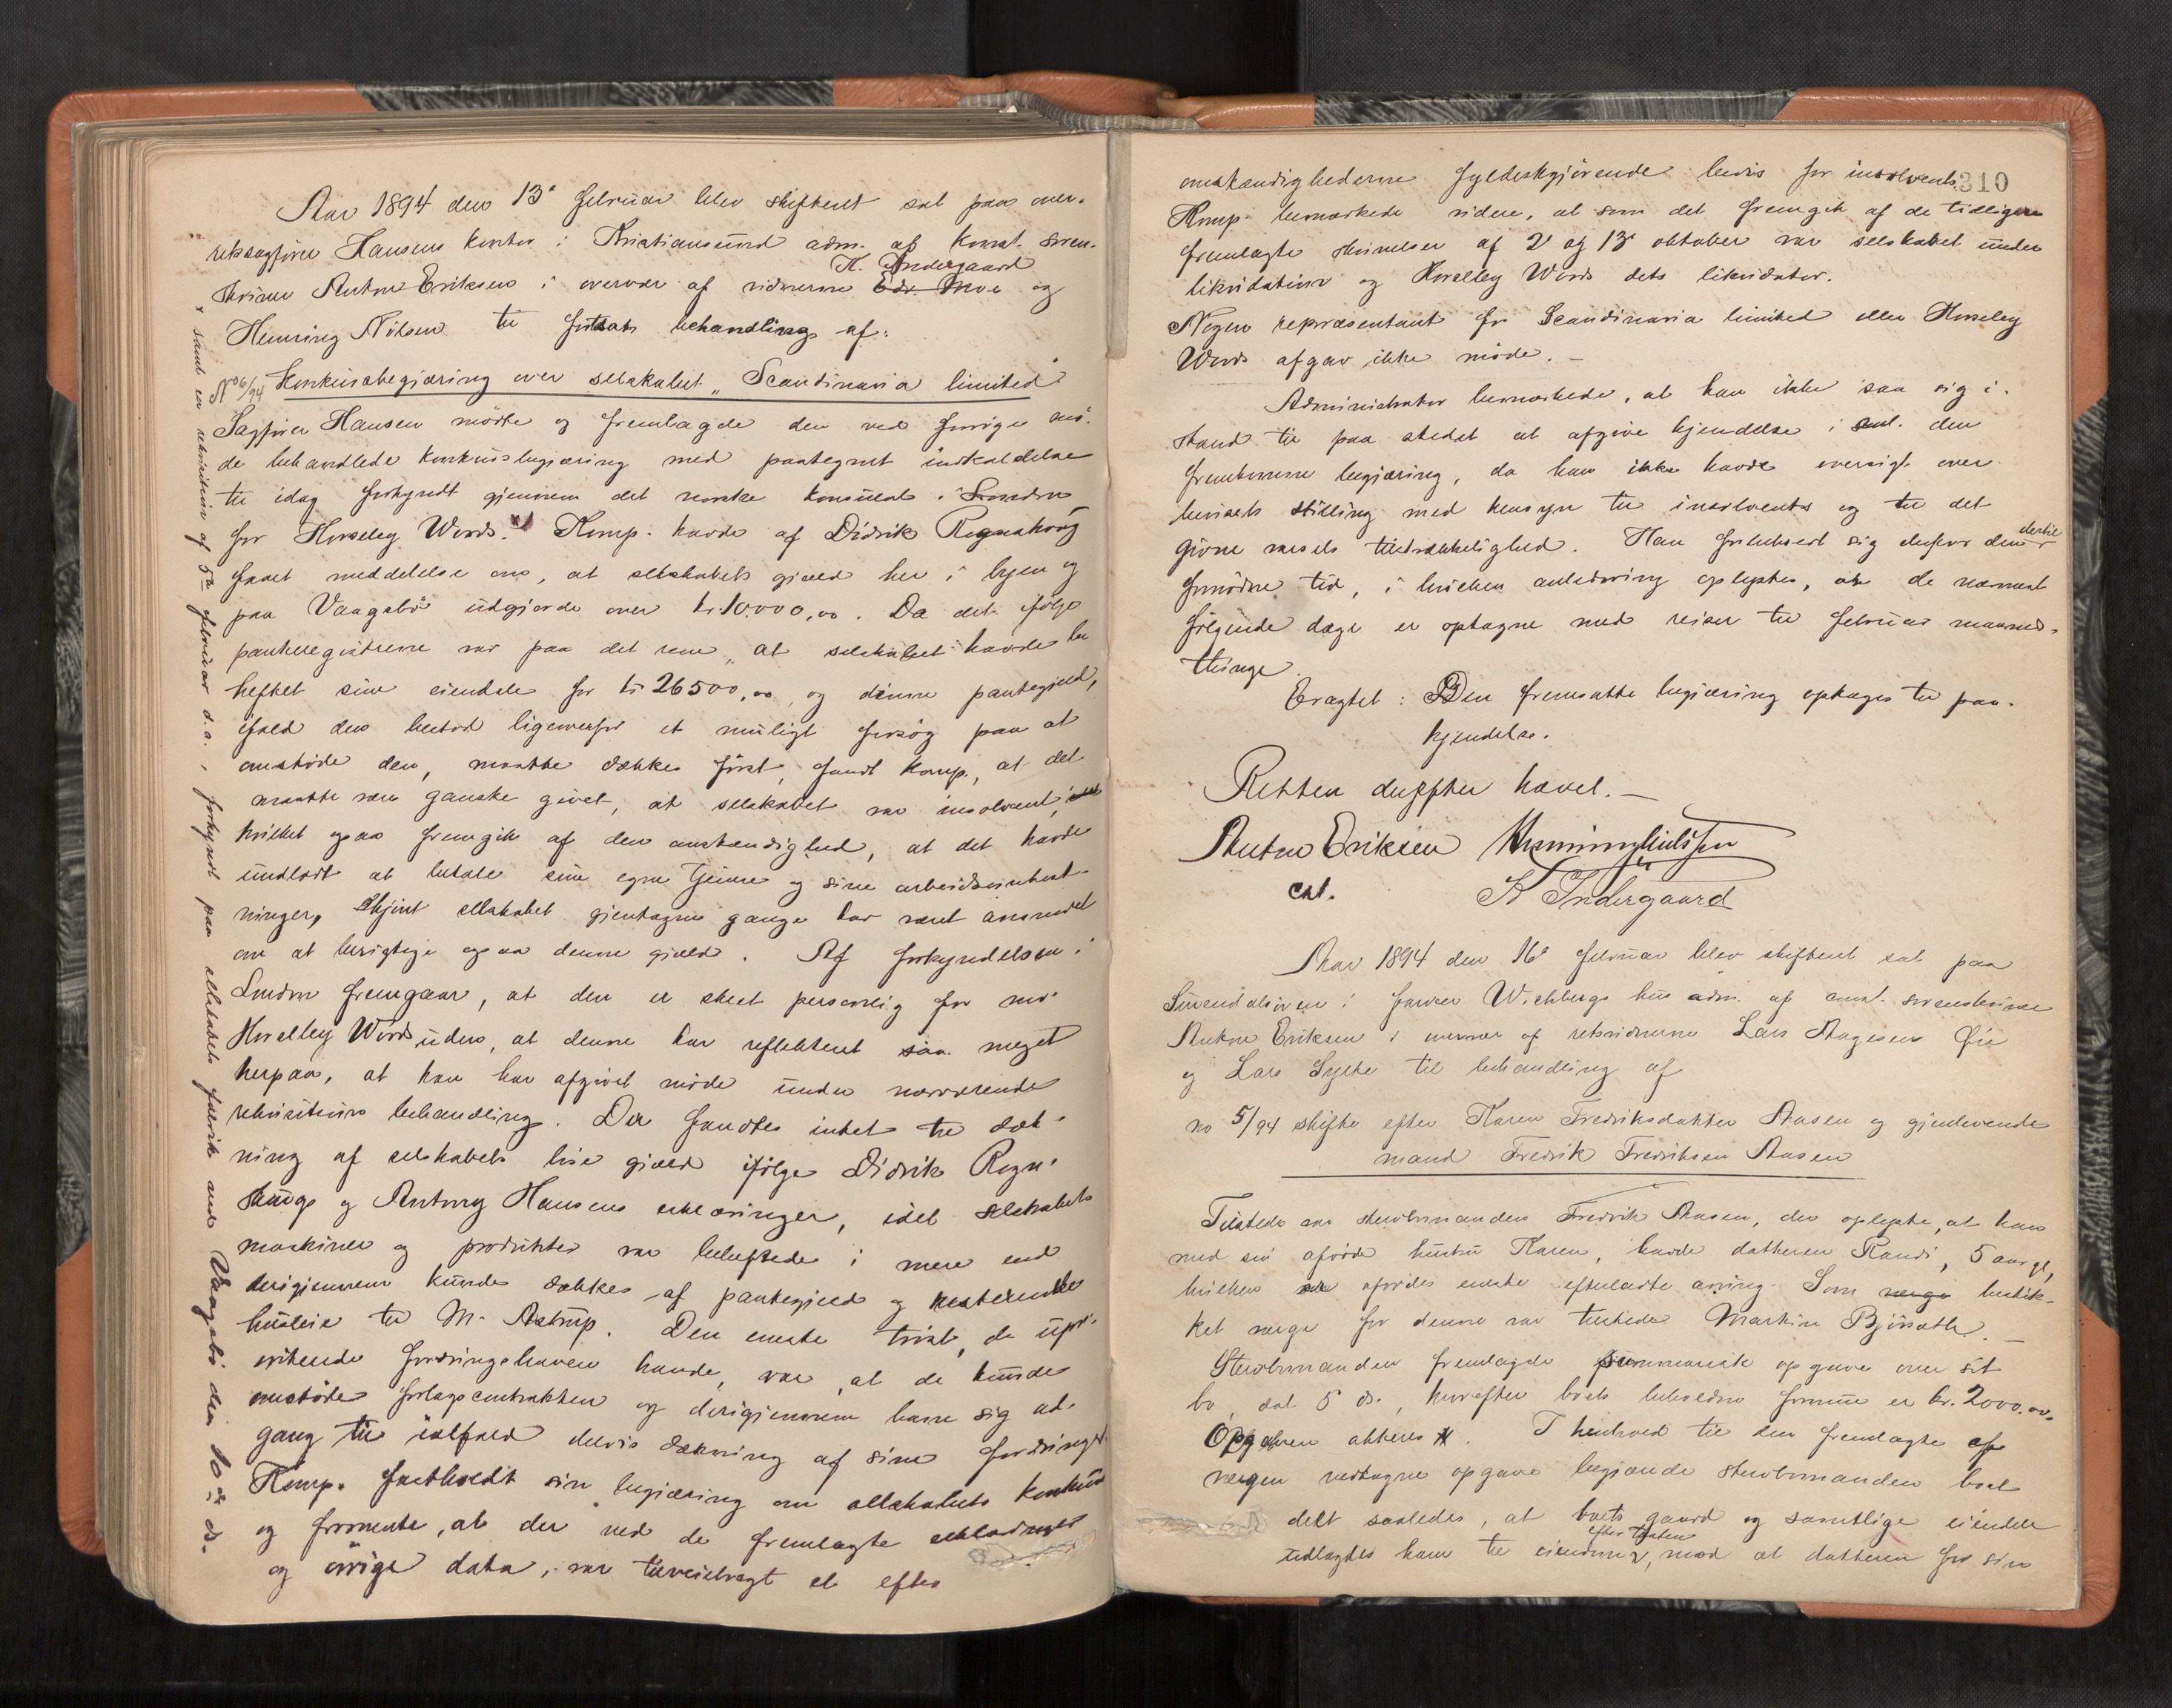 Aar 1894 den 13de februar blev skifteret sat paa over-
retssagfører Hansens kontor i Kristiansund adm. af konst. soren-
K. Indergaard
skriver Anton Eriksen i overvær af vidnerne Edv. Moe og
Henning Nilsen til fortsat behandling af:
No 6/94 Konkursbegjæring over selskabet "Scandinavia limited"
Sagfører Hansen mødte og fremlagde den ved forrige mø-
de behandlede konkursbegjæring med paategnet indkaldelse
til idag forkyndt gjennem det norske konsulat i London
for Horseley Words. x) Komp. havde af Didrik Rognskoug
faaet meddelelse om, at selskabets gjæld her i byen og
paa Vaagebø udgjorde over kr. 10.000,00. Da det ifølge
pantheregistrene var paa det rene, at selskabet havde be
heftet sine eiendele for kr 26500,00, og denne pantegjæld,
ifald den bestod ligeoverfor et muligt forsøg paa at
omstøde den, maatte dækkes først, fandt komp., at det
maatte være ganske givet, at selskabet var insolvent,
hvilket ogsaa fremgik af den omstændighed, at det havde
undladt at betale sine egne tjenere og sine arbeidsomkost-
ninger, skjønt selskabet gjentagne gange har været anmodet
om at berigtige ogsaa denne gjæld. Af forkyndelsen i
London fremgaar, at den er skeet personlig for mr.
Horselley Words uden, at denne har reflekteret saa meget
herpaa, at han har afgivet møde under nærværende
rekvisitions behandling. Der fandtes intet til dæk-
ning af selskabets løse gjæld ifølge Didrik Rogn-
skougs og Antony Hansens erklæringer, idet selskabets
maskiner og produkter var beheftede i mere end
derigjennem kunde dækkes af pantegjæld og resterende
husleie til M. Astrup. Den eneste trøst, de upri-
viterede fordringshavere havde, var, at de kunde
omstøde forlagscontrakten og derigjennem bane sig ad-
gang til ialfald delvis dækning af sine fordringer.
Komp. fastholdt sin begjæring om selskabets konkurs
og formente, at der ved de fremlagte erklæringer
og øvrige data, var tilveiebragt et efter
x samt en rekvisition af 5te februar d.a., forkyndt paa selskabets fabrik ved Vaagebø den 10de ds.
310
omstændighederne fyldestgjørende bevis for insolvents.
Komp. bemærkede videre, at som det fremgik af de tidligere
fremlagte skrivelser af 2 og 13de oktober var selskabet under
likvidation og Horselley Words dets likvidator.
Nogen repræsentant for Scandinavia limited eller Horseley
Words afgav ikke møde. —
Administrator bemærkede, at han ikke saa sig i-
stand til paa stedet at afgive kjendelse i anl. den
fremkomne begjæring, da han ikke havde oversigt over
bevisets stilling med hensyn til insolvents og til det
givne varsels tilstrækkelighed. Han forbeholdt sig derfor den dertil
fornødne tid, i hvilken anledning oplystes, at de nærmest
følgende dage er optagne med reiser til februar maaneds-
thinge.
Eragtet: Den fremsatte begjæring optages til paa-
kjendelse.
Retten derefter hævet. —
Anton Eriksen Henning Nielsen
cst. K Indergaard
Aar 1894 den 16de februar blev skifteret sat paa
Surendalsøren i farver Wichbergs hus adm. af const. sorenskriver
Anton Eriksen i overvær af retsvidnerne Lars Aagesen Øie
og Lars Sylte til behandling af
no 5/94 skifte efter Karen Fredriksdatter Aasen og gjenlevende
mand Fredrik Fredriksen Aasen
Tilstede var sterbmanden Fredrik Aasen, der oplyste, at han
med sin afdøde hustru Karen, havde datteren Randi, 5 aar gl,
hvilken var afdødes eneste efterladte arving. Som værge beskik-
ket værge for denne var tilstede Martin Bjønseth. —
Sterbmanden fremlagde summarisk opgave over sit
bo, dat 5 ds., hvorefter boets beholdne formue er kr. 2000.00.
Opgaven akteres. I henhold til den fremlagte af
værgen vedtagne opgave begjærede sterbmanden boet
delt saaledes, at boets gaard og samtlige eiendele
efter taxten
udlagdes ham til eiendom, mod at datteren for sin